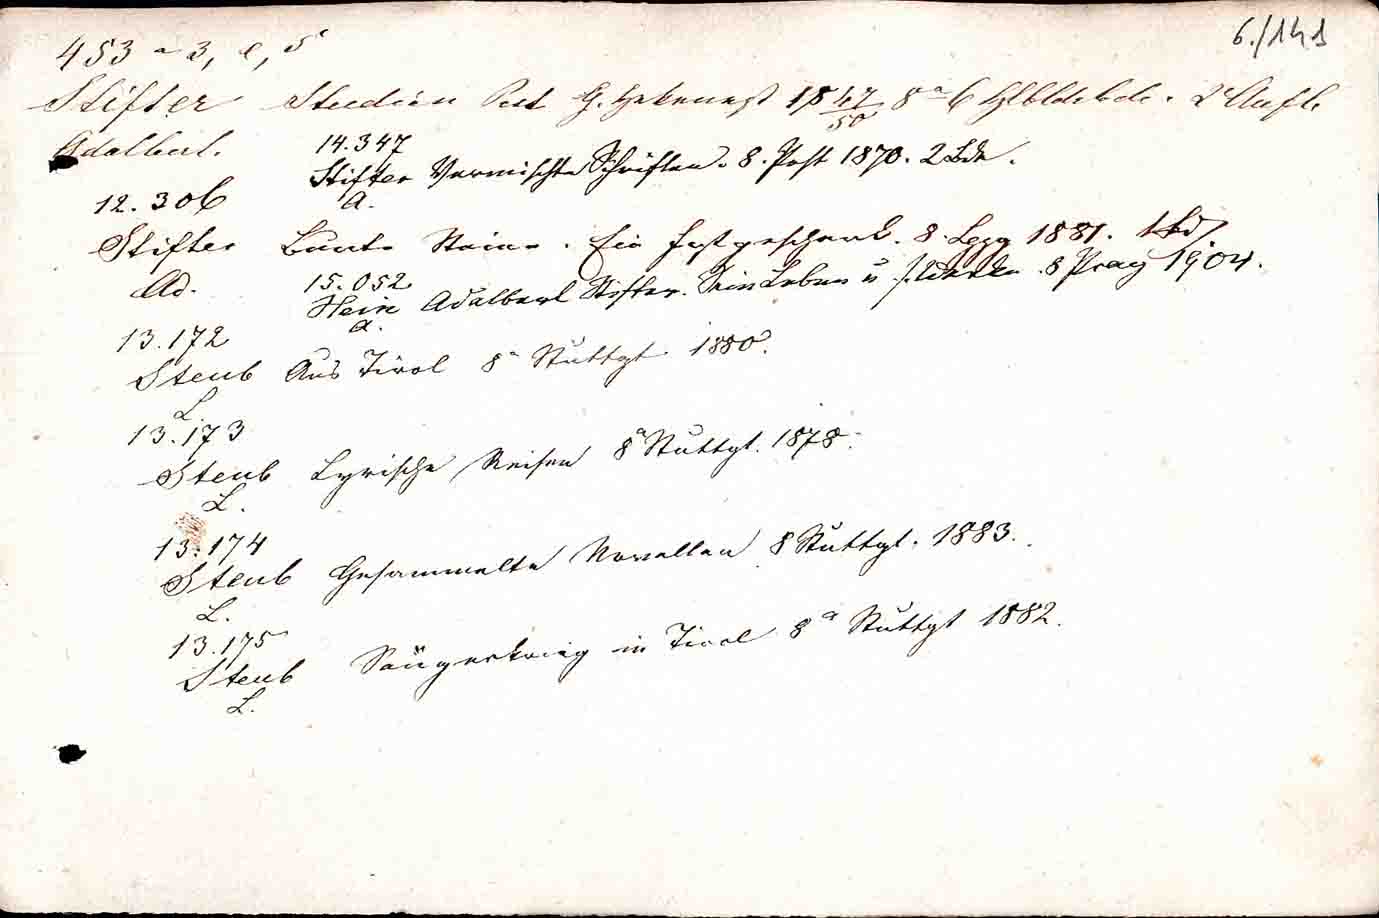 6./141
453 a 3, e, 5
Stifter Studien Pest G. Hekenast 1847/50 8° 6 Hlbldrbde. 2 Aufl.
Adalbert.
14.347
Stifter Vermischte Schriften. 8. Pest 1870. 2 Bde.
A.
12.306
Stifter Bunte Steine. Ein Festgeschenk. 8. Lpzg 1881. 1 Bd
Ad.
15.052
Hein Adalbert Stifter. Sein Leben u s. Werke. 8 Prag 1904.
a.
13.172
Steub Aus Tirol 8° Stuttgt 1880.
L
13.173
Steub Lyrische Reisen 8° Stuttgt. 1878.
L.
13.174
Steub Gesammelte Novellen 8 Stuttgt. 1883.
L.
13.175
Steub Sängerkrieg in Tirol 8° Stuttgt 1882.
L.